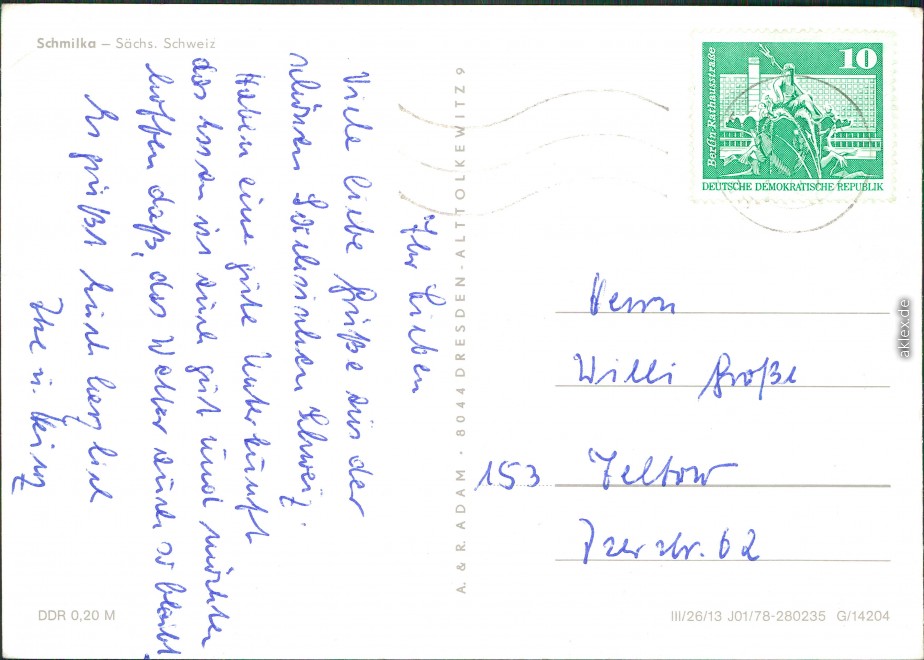 Schmilka – Sächs. Schweiz
Ihr Lieben
Viele liebe Grüße aus der
schönen Sächsischen Schweiz.
Haben eine gute Unterkunft
das Essen ist auch gut und möchten
hoffen daß, das Wetter auch so bleibt.
Es grüßt Euch herzlich
u. Heinz
A. & R. ADAM · 8044 DRESDEN - ALTTOLKEWITZ 9
10
Berlin-Rathausstraße
DEUTSCHE DEMOKRATISCHE REPUBLIK
Herrn
Willi Große
153 Teltow
str. 62
DDR 0,20 M
III/26/13 J01/78-280235 G/14204
aklex.de